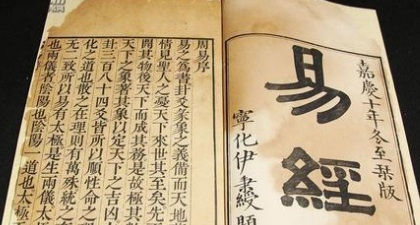 嘉慶十年冬至栞版
易經
寧化伊秉綬題
周易序
易之為書卦爻彖象之義備而天地
情見聖人之憂天下來世其至矣先
開其物後天下而成其務是故極其
天下之象著其象以定天下之吉凶
卦三百八十四爻皆所以順性命之
化之道也散之在理則有萬殊統之在
無二致所以易有太極是生兩儀太
也兩儀者陰陽也陰陽一道也太極